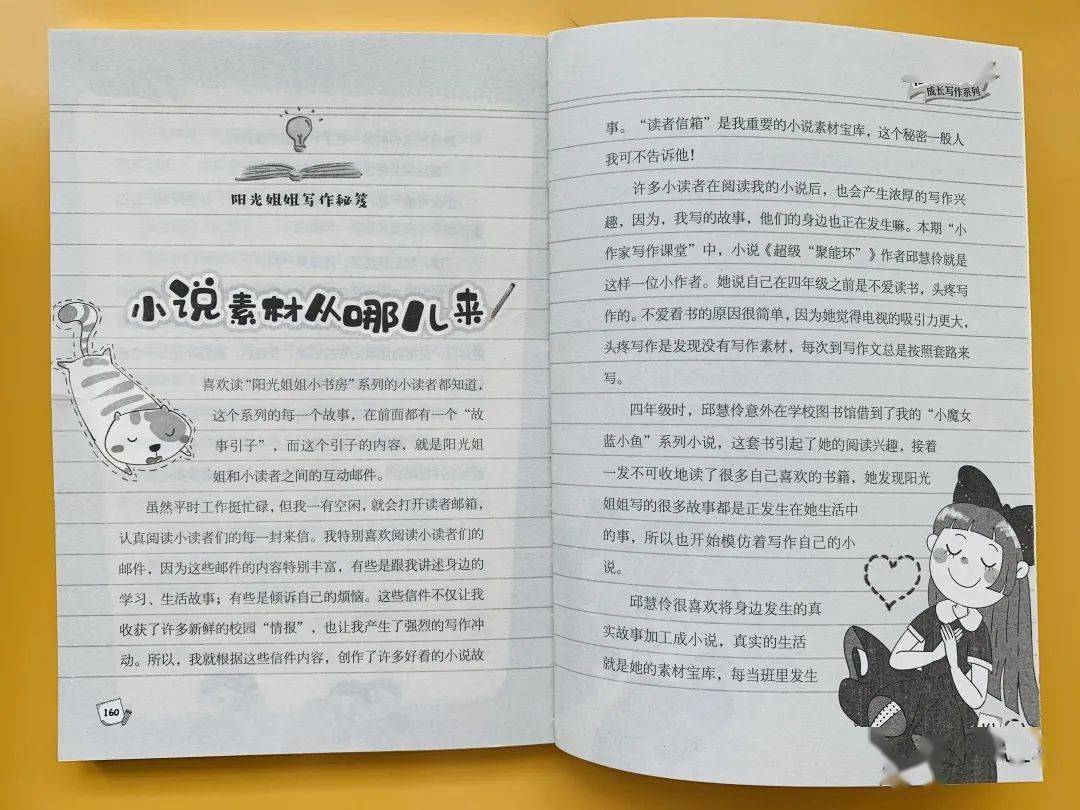 阳光姐姐写作秘笈
小说素材从哪儿来
喜欢读“阳光姐姐小书房”系列的小读者都知道，
这个系列的每一个故事，在前面都有一个“故
事引子”，而这个引子的内容，就是阳光姐
姐和小读者之间的互动邮件。
虽然平时工作挺忙碌，但我一有空闲，就会打开读者邮箱，
认真阅读小读者们的每一封来信。我特别喜欢阅读小读者们的
邮件，因为这些邮件的内容特别丰富，有些是跟我讲述身边的
学习、生活故事；有些是倾诉自己的烦恼。这些信件不仅让我
收获了许多新鲜的校园“情报”，也让我产生了强烈的写作冲
动。所以，我就根据这些信件内容，创作了许多好看的小说故
160
成长写作系列
事。“读者信箱”是我重要的小说素材宝库，这个秘密一般人
我可不告诉他！
许多小读者在阅读我的小说后，也会产生浓厚的写作兴
趣，因为，我写的故事，他们的身边也正在发生嘛。本期“小
作家写作课堂”中，小说《超级“聚能环”》作者邱慧伶就是
这样一位小作者。她说自己在四年级之前是不爱读书，头疼写
作的。不爱看书的原因很简单，因为她觉得电视的吸引力更大，
头疼写作是发现没有写作素材，每次到写作文总是按照套路来
写。
四年级时，邱慧伶意外在学校图书馆借到了我的“小魔女
蓝小鱼”系列小说，这套书引起了她的阅读兴趣，接着
一发不可收地读了很多自己喜欢的书籍，她发现阳光
姐姐写的很多故事都是正发生在她生活中
的事，所以也开始模仿着写作自己的小
说。
邱慧伶很喜欢将身边发生的真
实故事加工成小说，真实的生活
就是她的素材宝库，每当班里发生